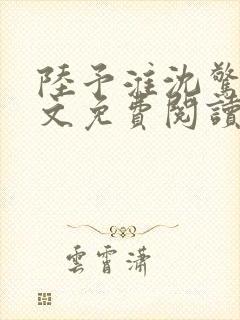 陸予淮沈驚
文免費閱讀
雲霄瀟